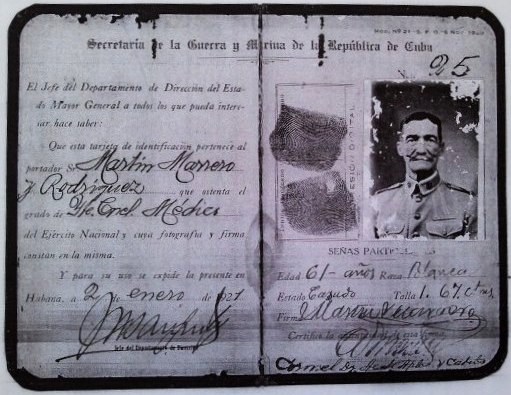 Secretaría de la Guerra y Marina de la República de Cuba
25
El Jefe del Departamento de Dirección del Esta-
do Mayor General a todos los que pueda intere-
sar, hace saber:
Que esta tarjeta de identificación pertenece al
portador Sr. Martin Marrero
y Rodriguez que ostenta el
grado de Tte. Cnel. Médico
del Ejército Nacional y cuya fotografía y firma
constan en la misma.
Y para su uso se expide la presente en
Habana, a 2 de enero de 1921
Jefe del Departamento de Dirección
SEÑAS PARTI
Edad 61 años Raza Blanca
Estado Casado Talla 1.67 ctms
Firma Martin Marrero
Certifico la
Coronel